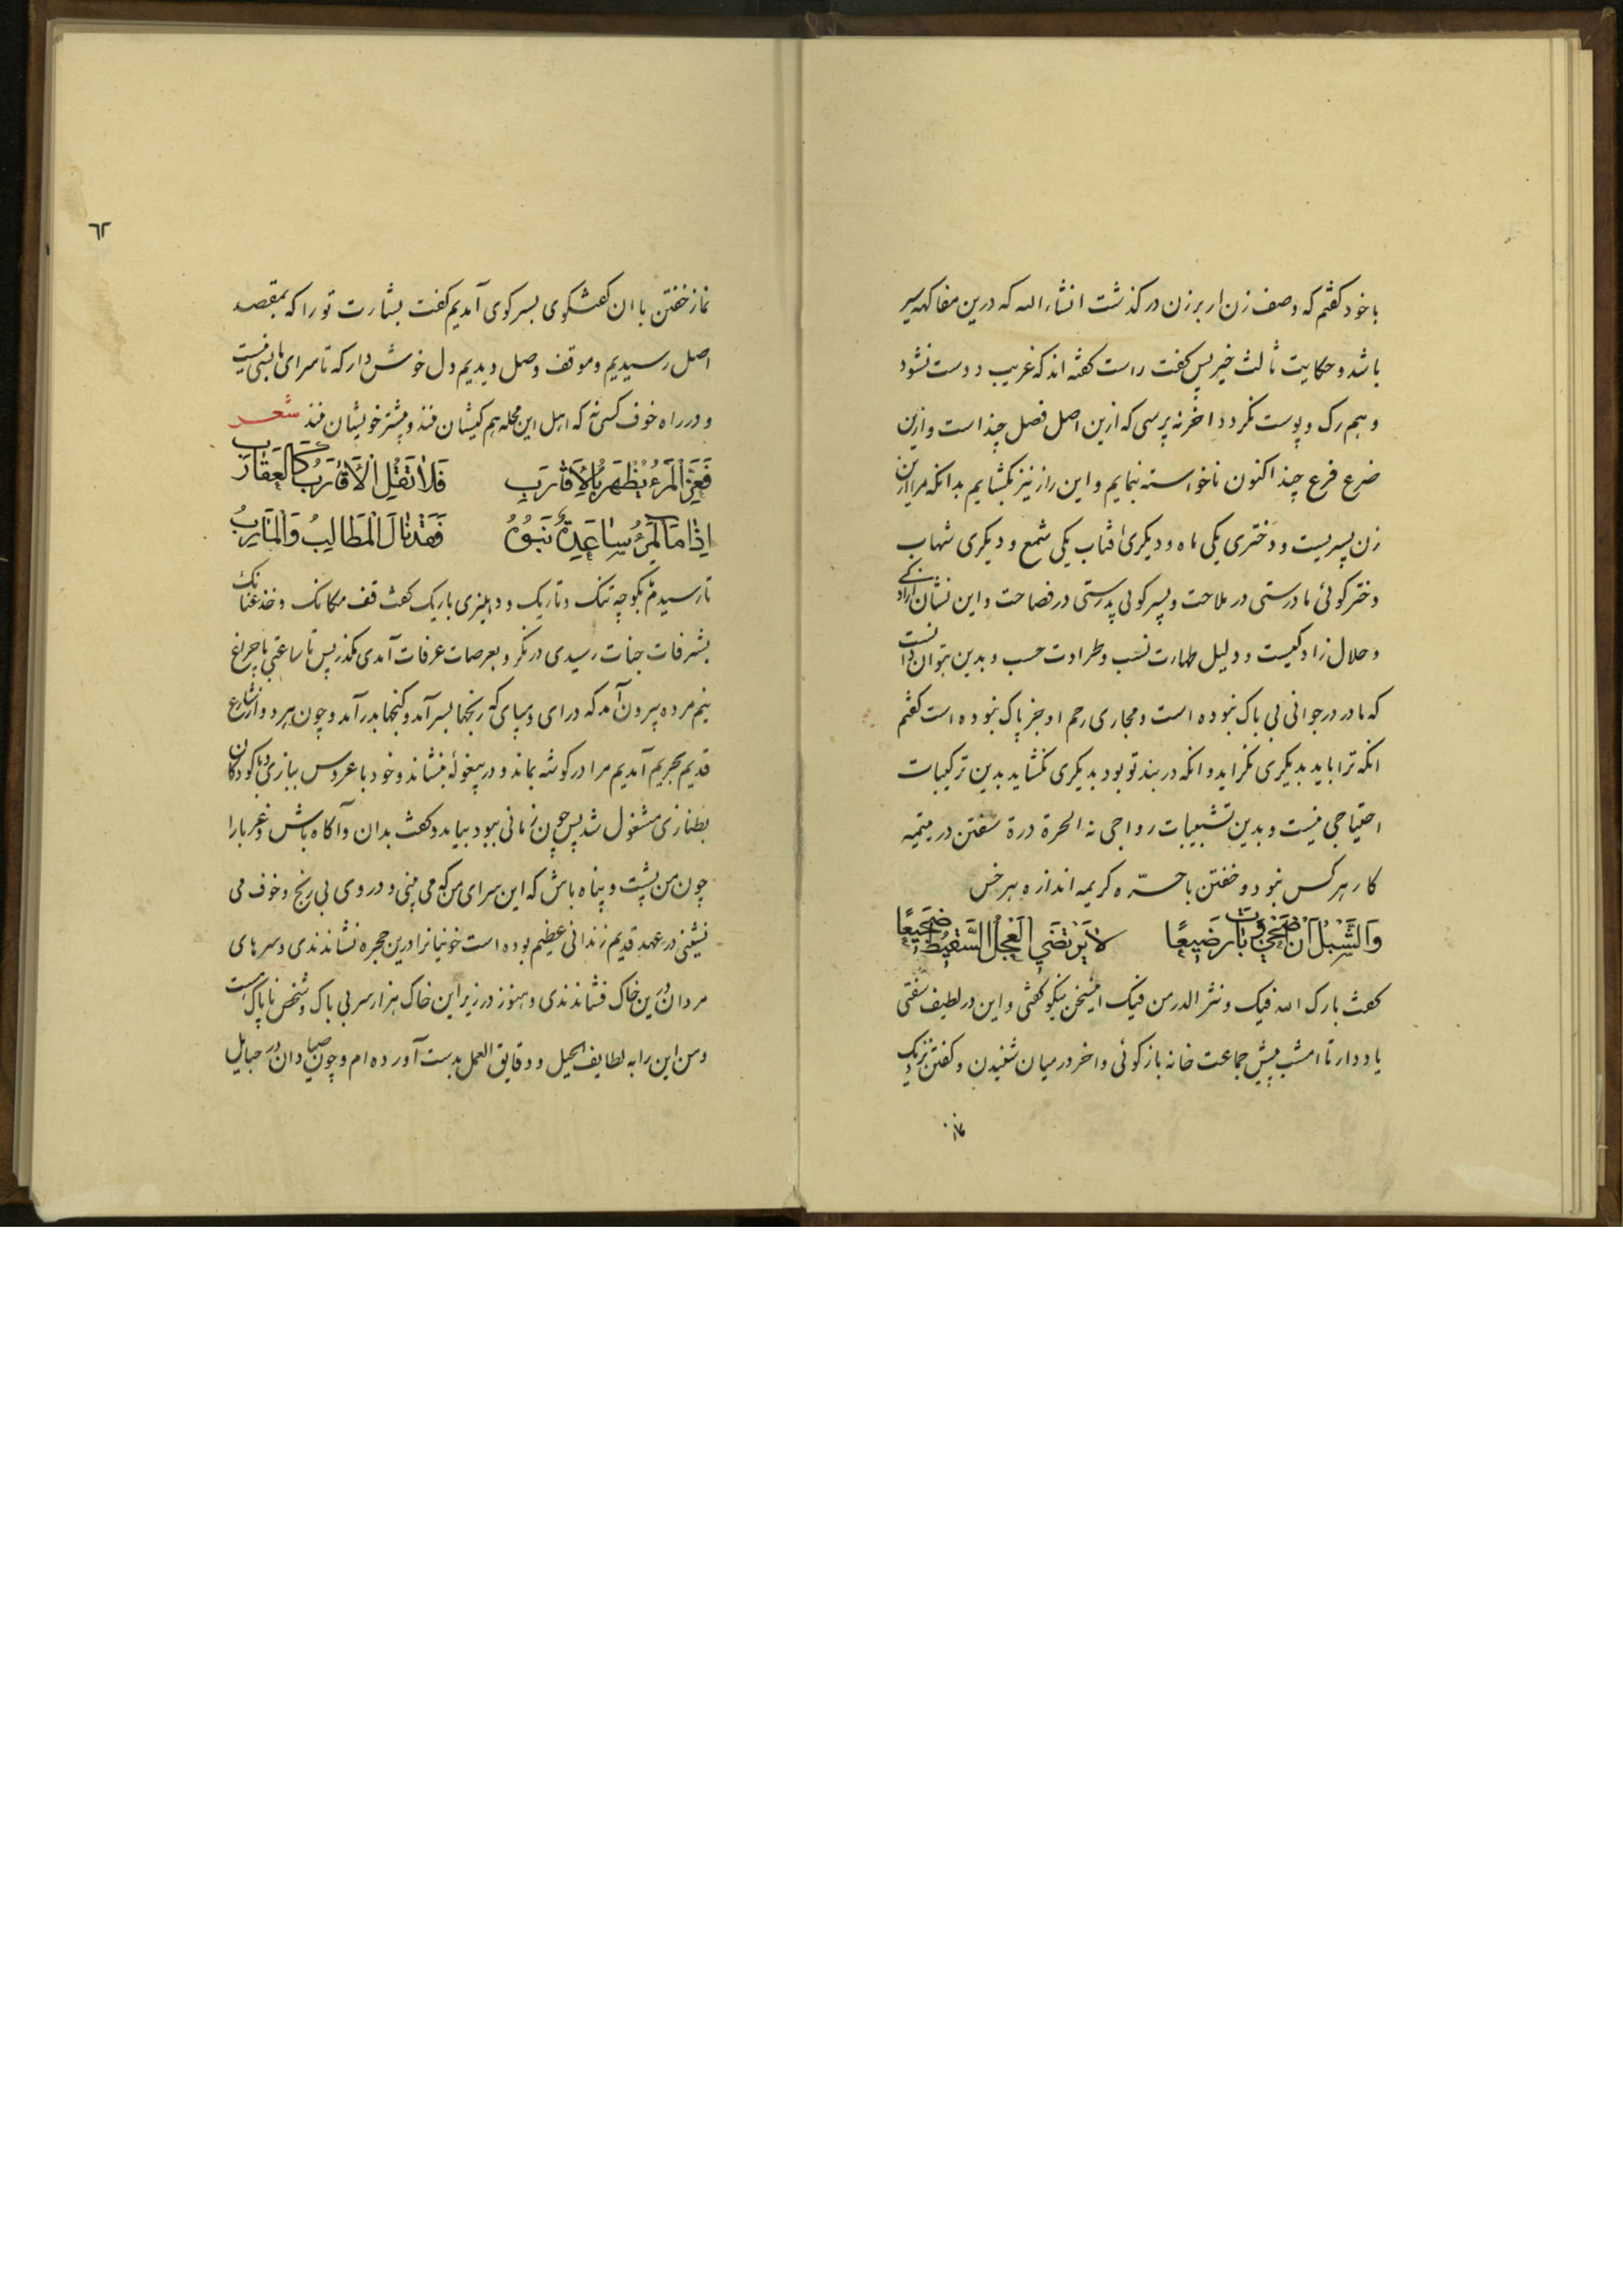 با خود گفتم که وصف زن ار برزن درگذشت انشاء الله که درین مفاکهه سیر
باشد و حکایت ثالث خیر پس گفت راست گفته اند که غریب دوست نشود
و هم رک و پوست نکردد اخر نه پرسی که ازین اصل فصل چند است و ازین
ضرع فرع چند اکنون ناخواسته بنمایم و این راز نیز بکشایم بدانکه مرا ازین
زن پسریست و دختری یکی ماه و دیکری افتاب یکی شمع و دیکری شهاب
دختر کوئی مادرستی در ملاحت و پسر کوئی پدرستی در فصاحت و این نشان ازاد
و حلال زادکیست و دلیل طهارت نسب و طرادت حسب و بدین بتوان دانست
که مادر در جوانی بی باک نبوده است و مجاری رحم او جز پاک نبوده است گفتم
انکه ترا باید بدیکری نکراید و انکه در بند تو بود بدیکری نکشاید بدین ترکیبات
احتیاجی نیست و بدین تشبیبات رواجی نه الحرة درة سفتن در یتیمه
کار هرکس نبود و خفتن با حره کریمه اندازه هر خس
وَالشِّبْلُ اَنْ ضَحَی وَبَاتَ رَضِیعًا لَا یَرْتَضِی الْعِجْلَ السَّقِیطَ ضَجِیعًا
گفت بارک الله فیک و نثر الدر من فیک این سخن نیکو گفتی و این در لطیف سفتی
یاد دار تا امشب پیش جماعت خانه بازکوئی و اخر در میان شنیدن و کفتن نزدیک
نماز
٦٢
نماز خفتن با ان گفت‌وکوی بسر کوی آمدیم گفت بشارت تو را که بمقصد
اصل رسیدیم و موقف وصل دیدیم دل خوش دار که تا سرای ما بسی نیست
و در راه خوف کسی نه که اهل این محله هم کیشان منند و بیشتر خویشان منند شعر
فَعِزُّ الْمَرْءِ یَظْهَرُ بِالْاَقَارِبِ فَلَا تَقُلِ الْاَقَارِبُ کَالْعَقَارِبِ
اِذَا مَا الْمَرْءُ سَاعَدَهُ بَنُوهُ فَقَدْ نَالَ الْمَطَالِبَ وَالْمَآرِبَ
تا رسیدم بکوچه تنک و تاریک و دهلیزی باریک گفت قف مکانک و خذ عنانک
بشرفات جنات رسیدی درنکر و بعرصات عرفات آمدی مکذر پس تا ساعتی با چراغ
نیم مرده بیرون آمد که درای و بپای که رنجها بسر آمد و کنجها بدر آمد و چون هر دو از شارع
قدیم بحریم آمدیم مرا در کوشه بماند و در بیغوله بنشاند و خود با عروس ببازی و با کودکان
بطنازی مشغول شد پس چون زمانی ببود بیامد و گفت بدان و آکاه باش و غربا را
چون من پشت و پناه باش که این سرای من که می بینی و در وی بی رنج و خوف می
نشینی در عهد قدیم زندانی عظیم بوده است خونیانرا درین حجره نشاندندی و سرهای
مردان درین خاک فشاندندی و هنوز در زیر این خاک هزار سر بی باک و شخص ناپاک است
و من این را به لطایف الحیل و دقایق العمل بدست آورده ام و چون صیادان در حبایل